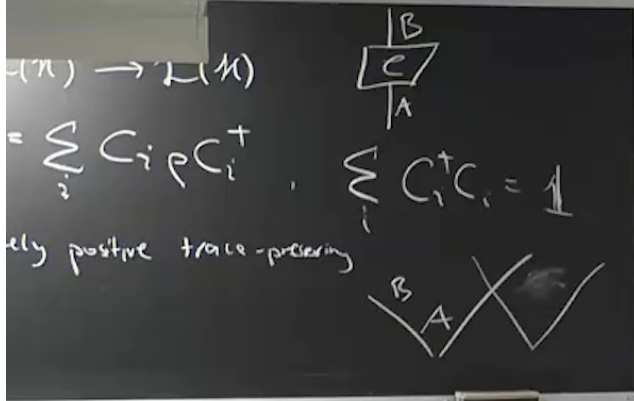 L(H) → L(H)
= Σ_i C_i ρ C_i^†, Σ_i C_i^† C_i = 1
ely positive trace-preserving
B
C
A
B
A